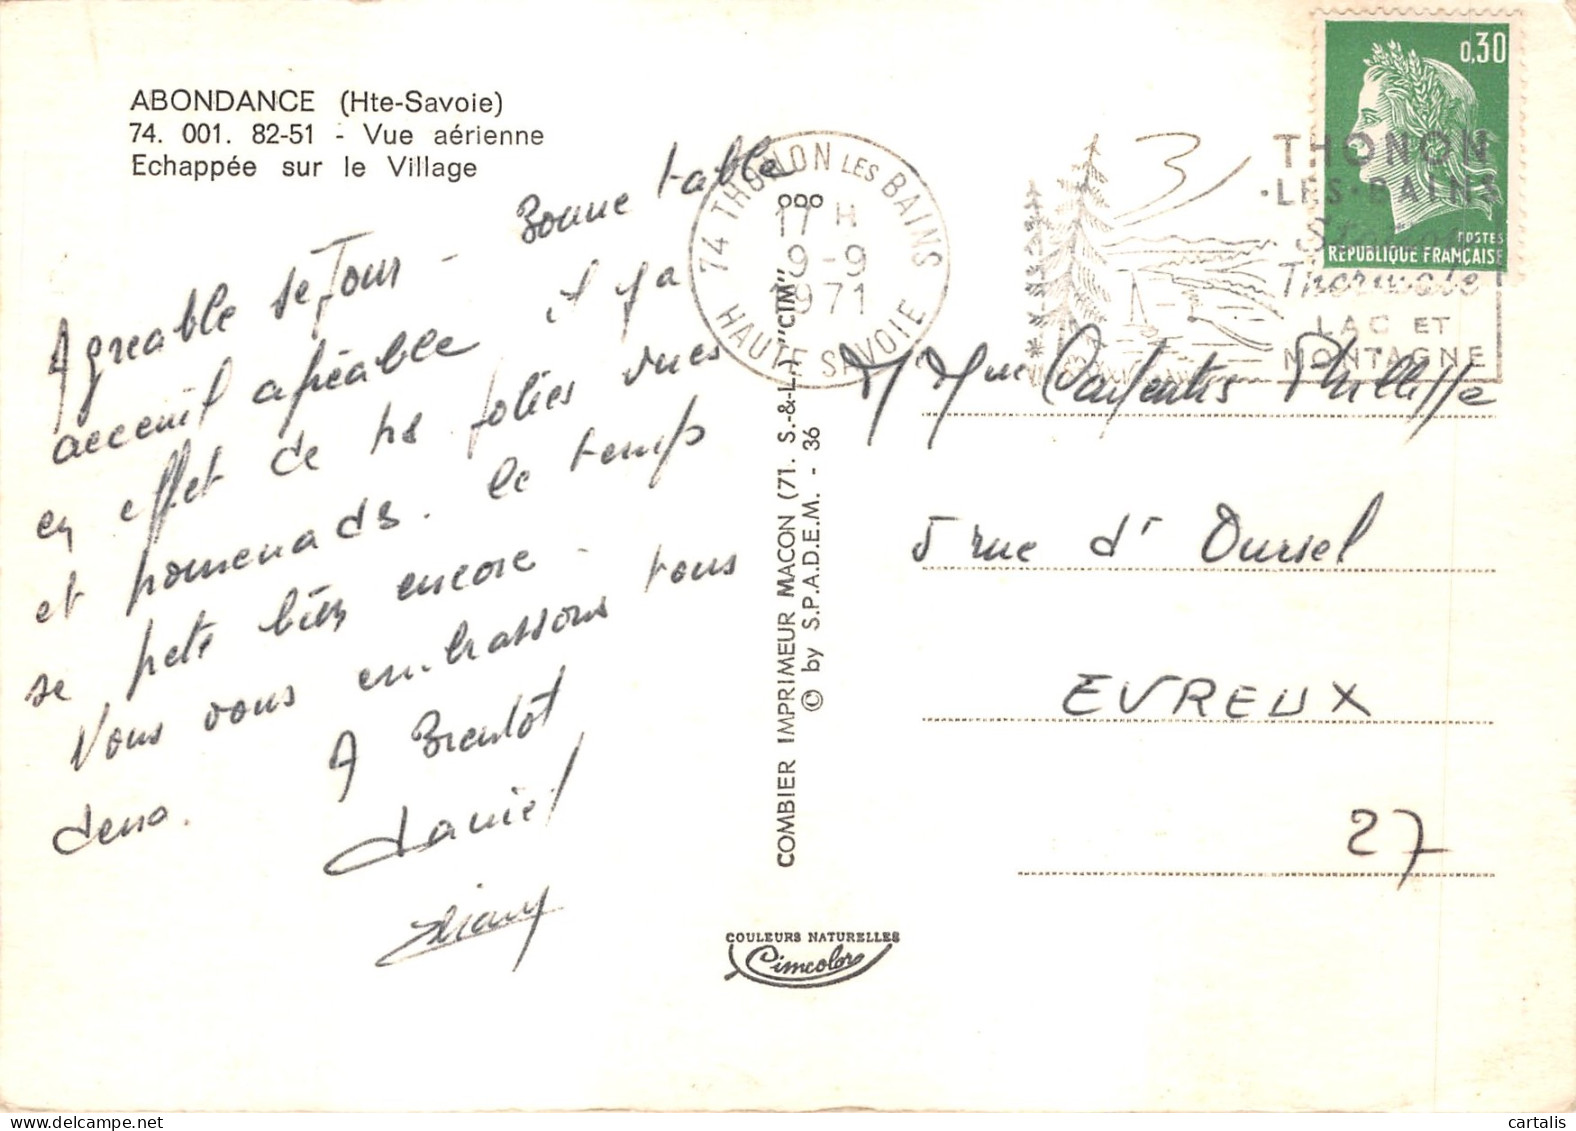 ABONDANCE (Hte-Savoie)
74. 001. 82-51 - Vue aérienne
Echappée sur le Village
Agreable sejour - Bonne table
acceuil agréable il y a
en effet de ts jolies vues
et promenads. le temps
se prete bien encore.
Vous vous embrassons tous
A Bientot
daniel
74 THONON LES BAINS
17 H
9-9
1971
HAUTE SAVOIE
THONON
·LES·BAINS
Station
Thermale
LAC ET
MONTAGNE
0,30
POSTES
REPUBLIQUE FRANÇAISE
M Mme Carpentier Philippe
5 rue d' Oursel
EVREUX
27
COMBIER IMPRIMEUR MACON (71. S.-&-L.) "CIM"
© by S.P.A.D.E.M. - 36
COULEURS NATURELLES
Cimcolor
cartalis